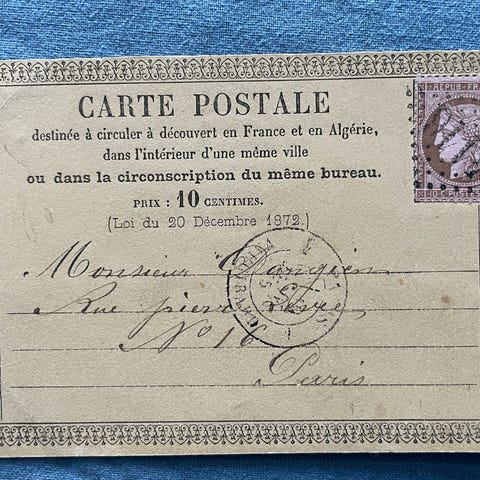 CARTE POSTALE
destinée à circuler à découvert en France et en Algérie,
dans l'intérieur d'une même ville
ou dans la circonscription du même bureau.
PRIX : 10 CENTIMES.
(Loi du 20 Décembre 1872.)
REPUB
Monsieur
Rue pierre
No 16
Paris